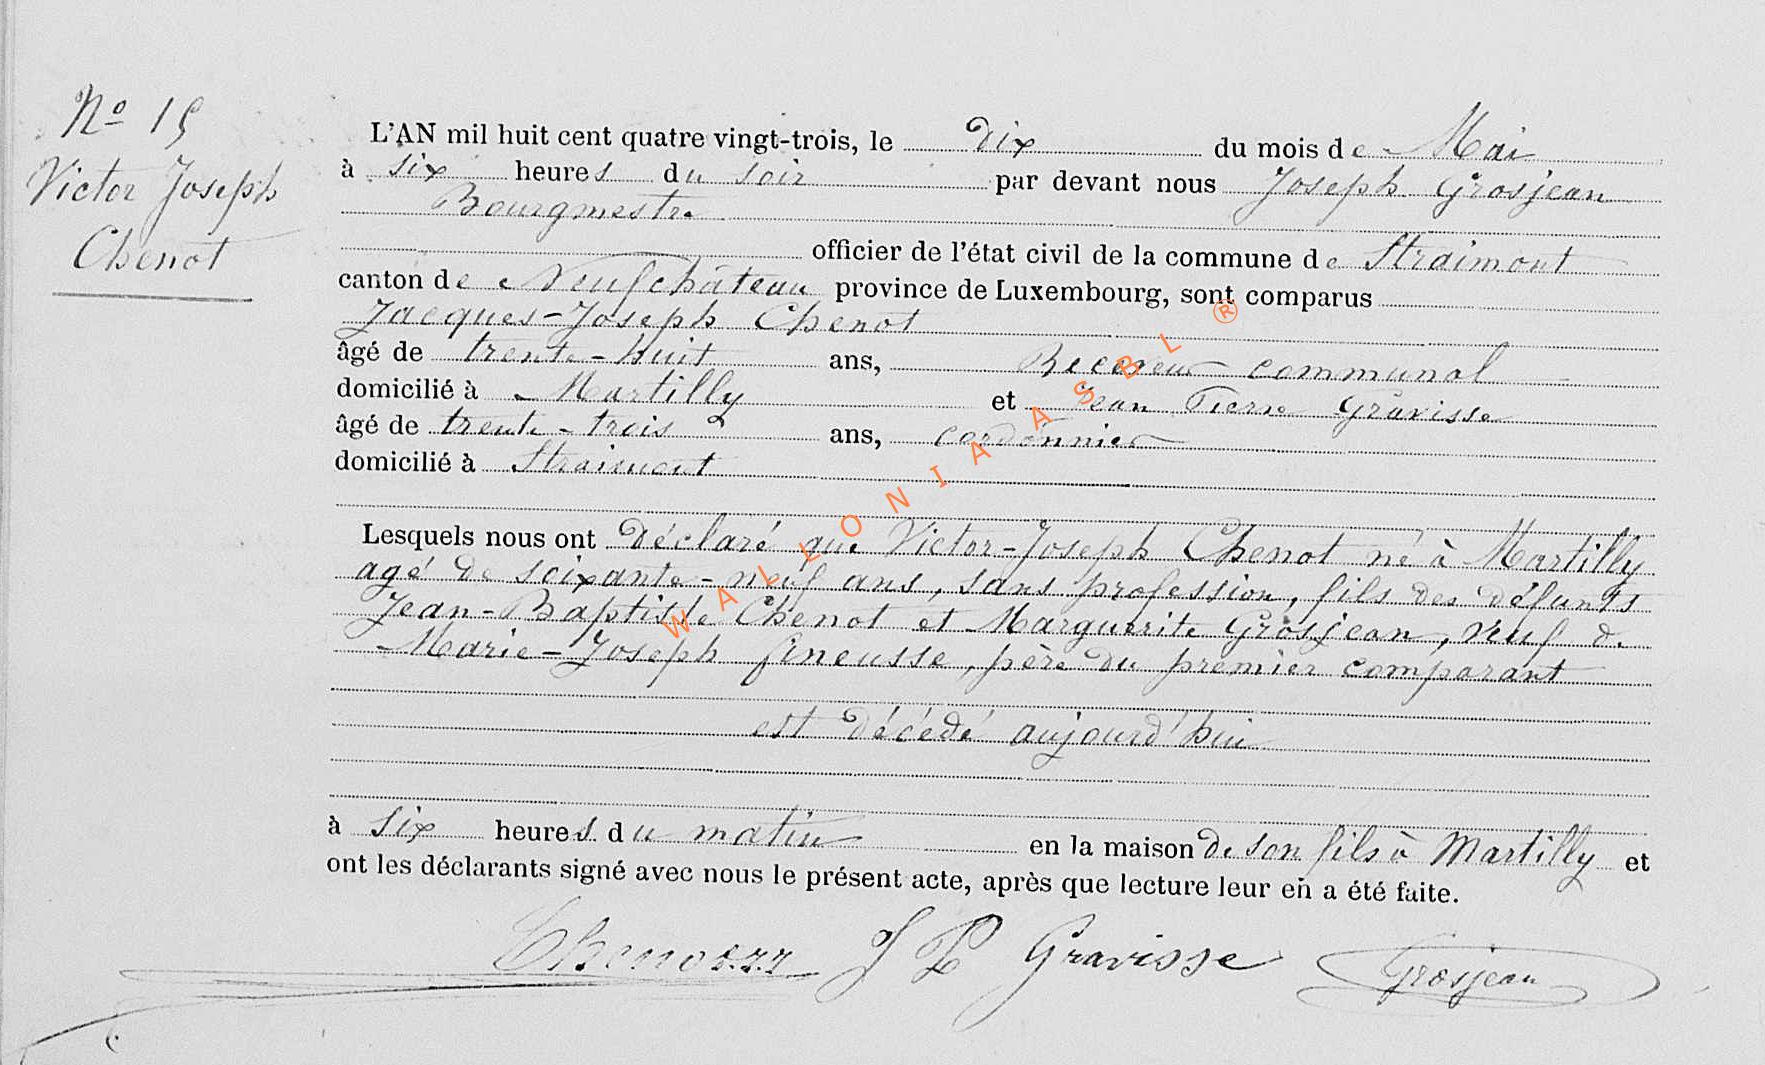 Nº 15
Victor Joseph
Chenot
L'AN mil huit cent quatre vingt-trois, le dix du mois de Mai
à six heures du soir par devant nous Joseph Grosjean
Bourgmestre
officier de l'état civil de la commune de Straimont
canton de Neufchâteau province de Luxembourg, sont comparus
Jacques-Joseph Chenot
âgé de trente-huit ans, Receveur communal
domicilié à Martilly et Jean Pierre Gravisse
âgé de trente-trois ans, cordonnier
domicilié à Straimont
Lesquels nous ont déclaré que Victor-Joseph Chenot né à Martilly
agé de soixante-neuf ans, sans profession, fils des défunts
Jean-Baptiste Chenot et Marguerite Grosjean, veuf de
Marie-Joseph Fineusse, père du premier comparant
est décédé aujourd'hui
à six heures du matin en la maison de son fils à Martilly et
ont les déclarants signé avec nous le présent acte, après que lecture leur en a été faite.
J P Gravisse Grosjean
WALLONIA ASBL ®